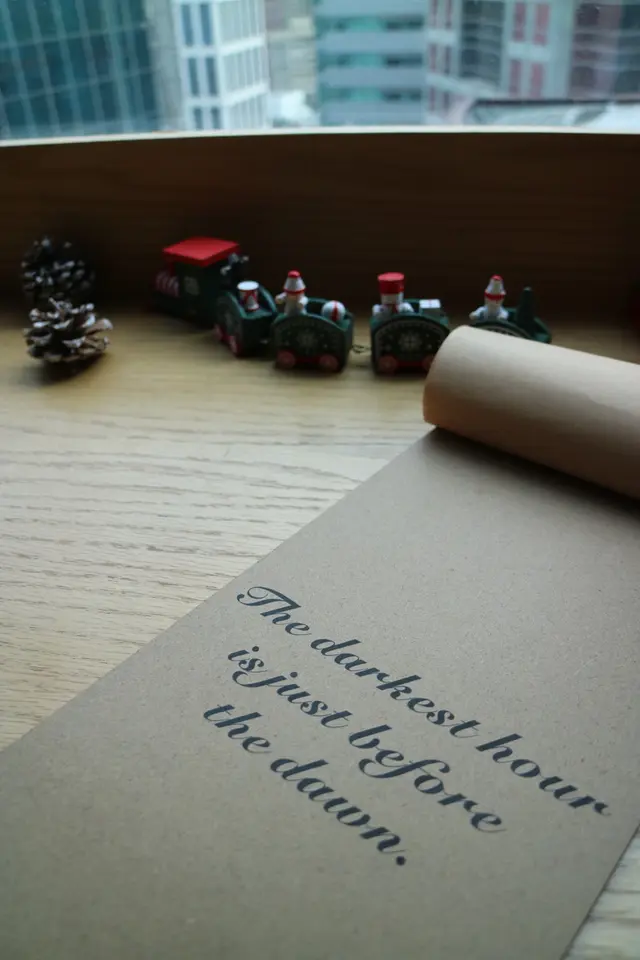 The darkest hour
is just before
the dawn.